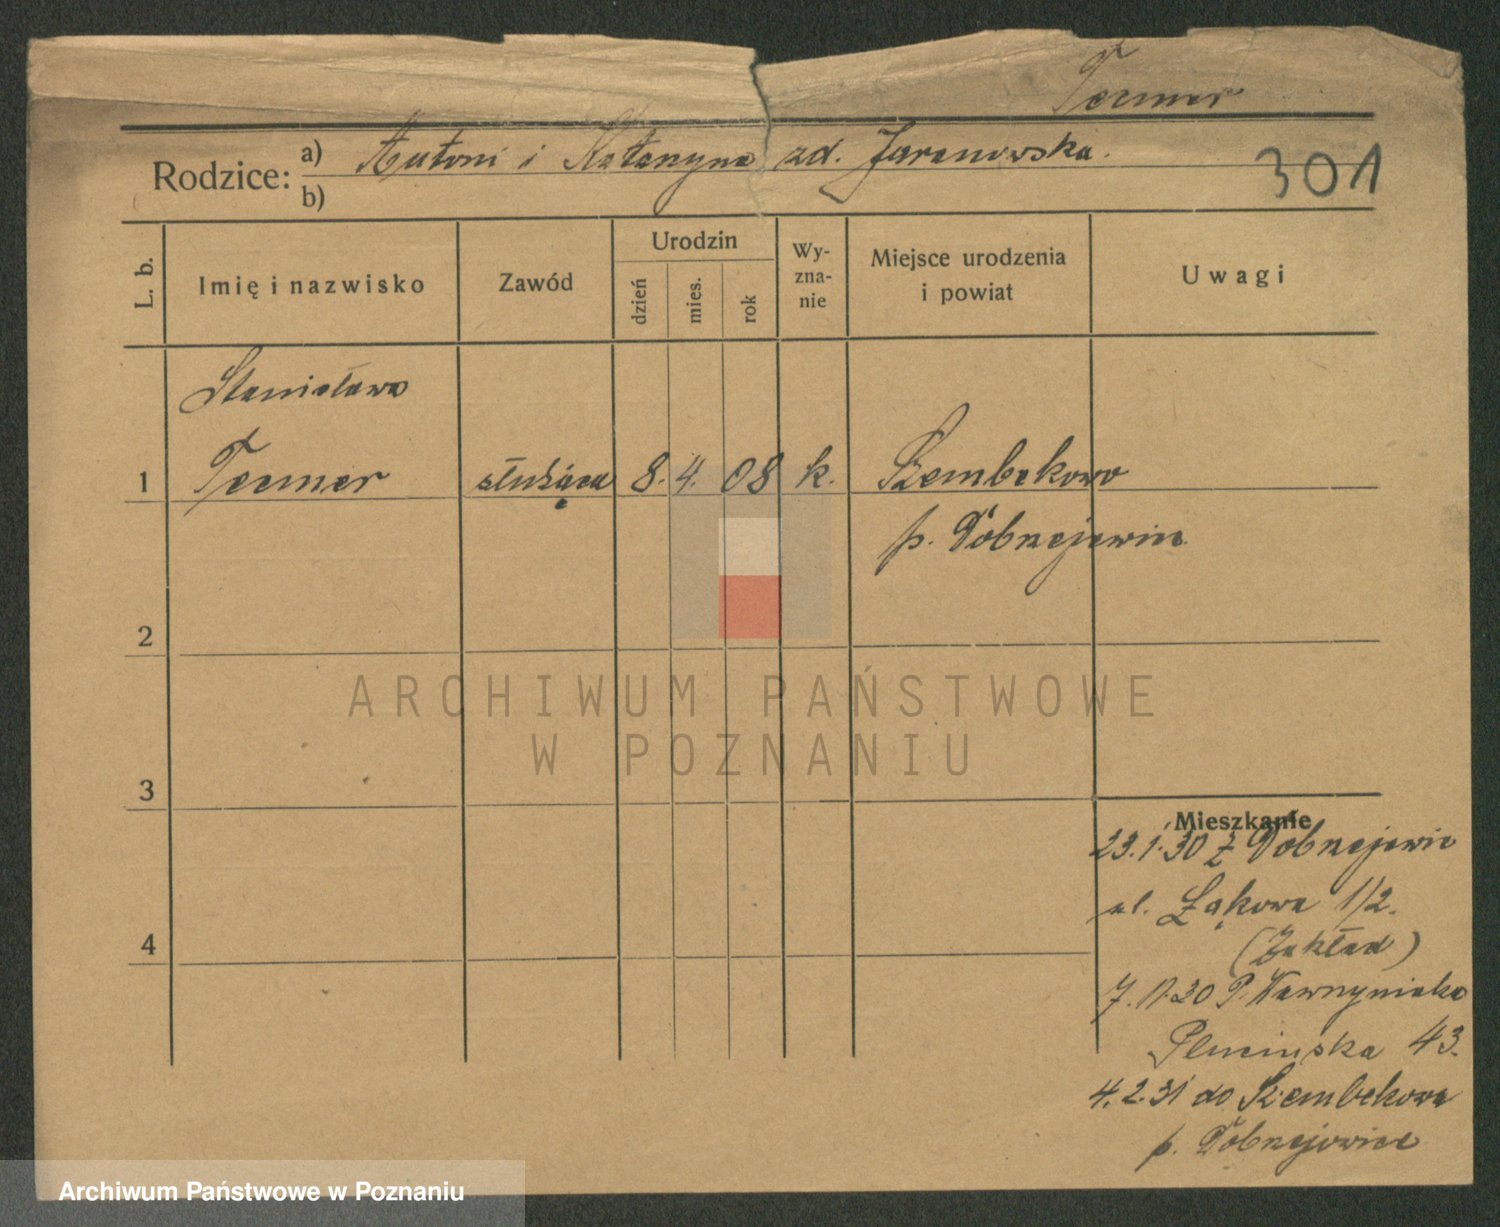 Termer
Rodzice: a) Antoni i Katarzyna zd. Jaranowska.
b)
301
L. b.
Imię i nazwisko
Zawód
Urodzin
dzień
mies.
rok
Wy-
zna-
nie
Miejsce urodzenia
i powiat
Uwagi
Stanisława
1 Termer służąca 8. 4. 08 k. Szembekowo
p.
2
3
4
Mieszkanie
23.1.30 z
ul. Łąkowa 1/2.
(Zakład)
7. 11. 30 P. Wawrzyniaka
43.
4. 2. 31 do Szembekowa
p.
ARCHIWUM PAŃSTWOWE
W POZNANIU
Archiwum Państwowe w Poznaniu